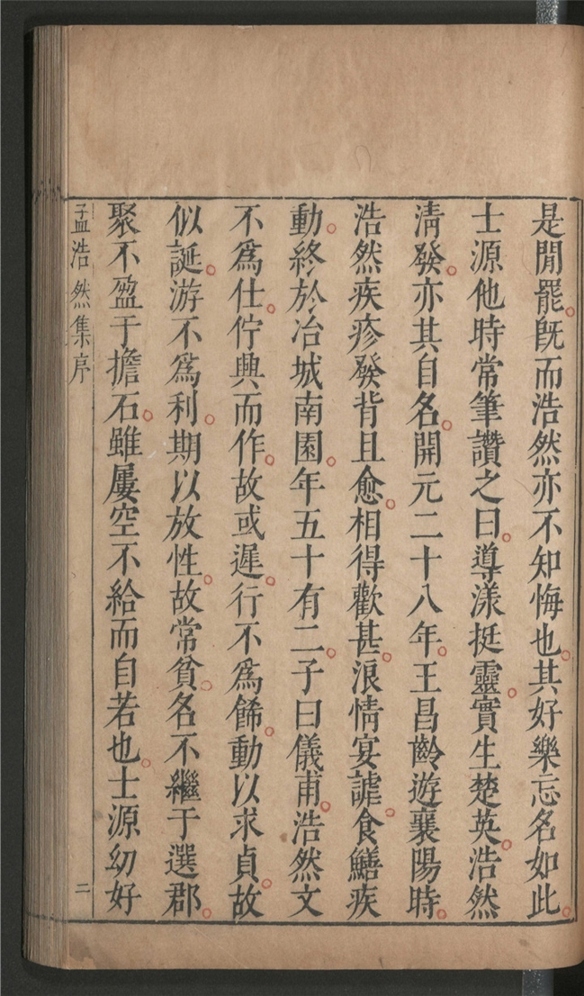 是閒罷旣而浩然亦不知悔也其好樂忘名如此
士源他時常筆讚之曰導漾挺靈實生楚英浩然
淸發亦其自名開元二十八年王昌齡遊襄陽時
浩然疾疹發背且愈相得歡甚浪情宴謔食鱔疾
動終於冶城南園年五十有二子曰儀甫浩然文
不爲仕佇興而作故或遲行不爲餙動以求貞故
似誕游不爲利期以放性故常貧名不繼于選郡
聚不盈于擔石雖屢空不給而自若也士源幼好
孟浩然集序
二